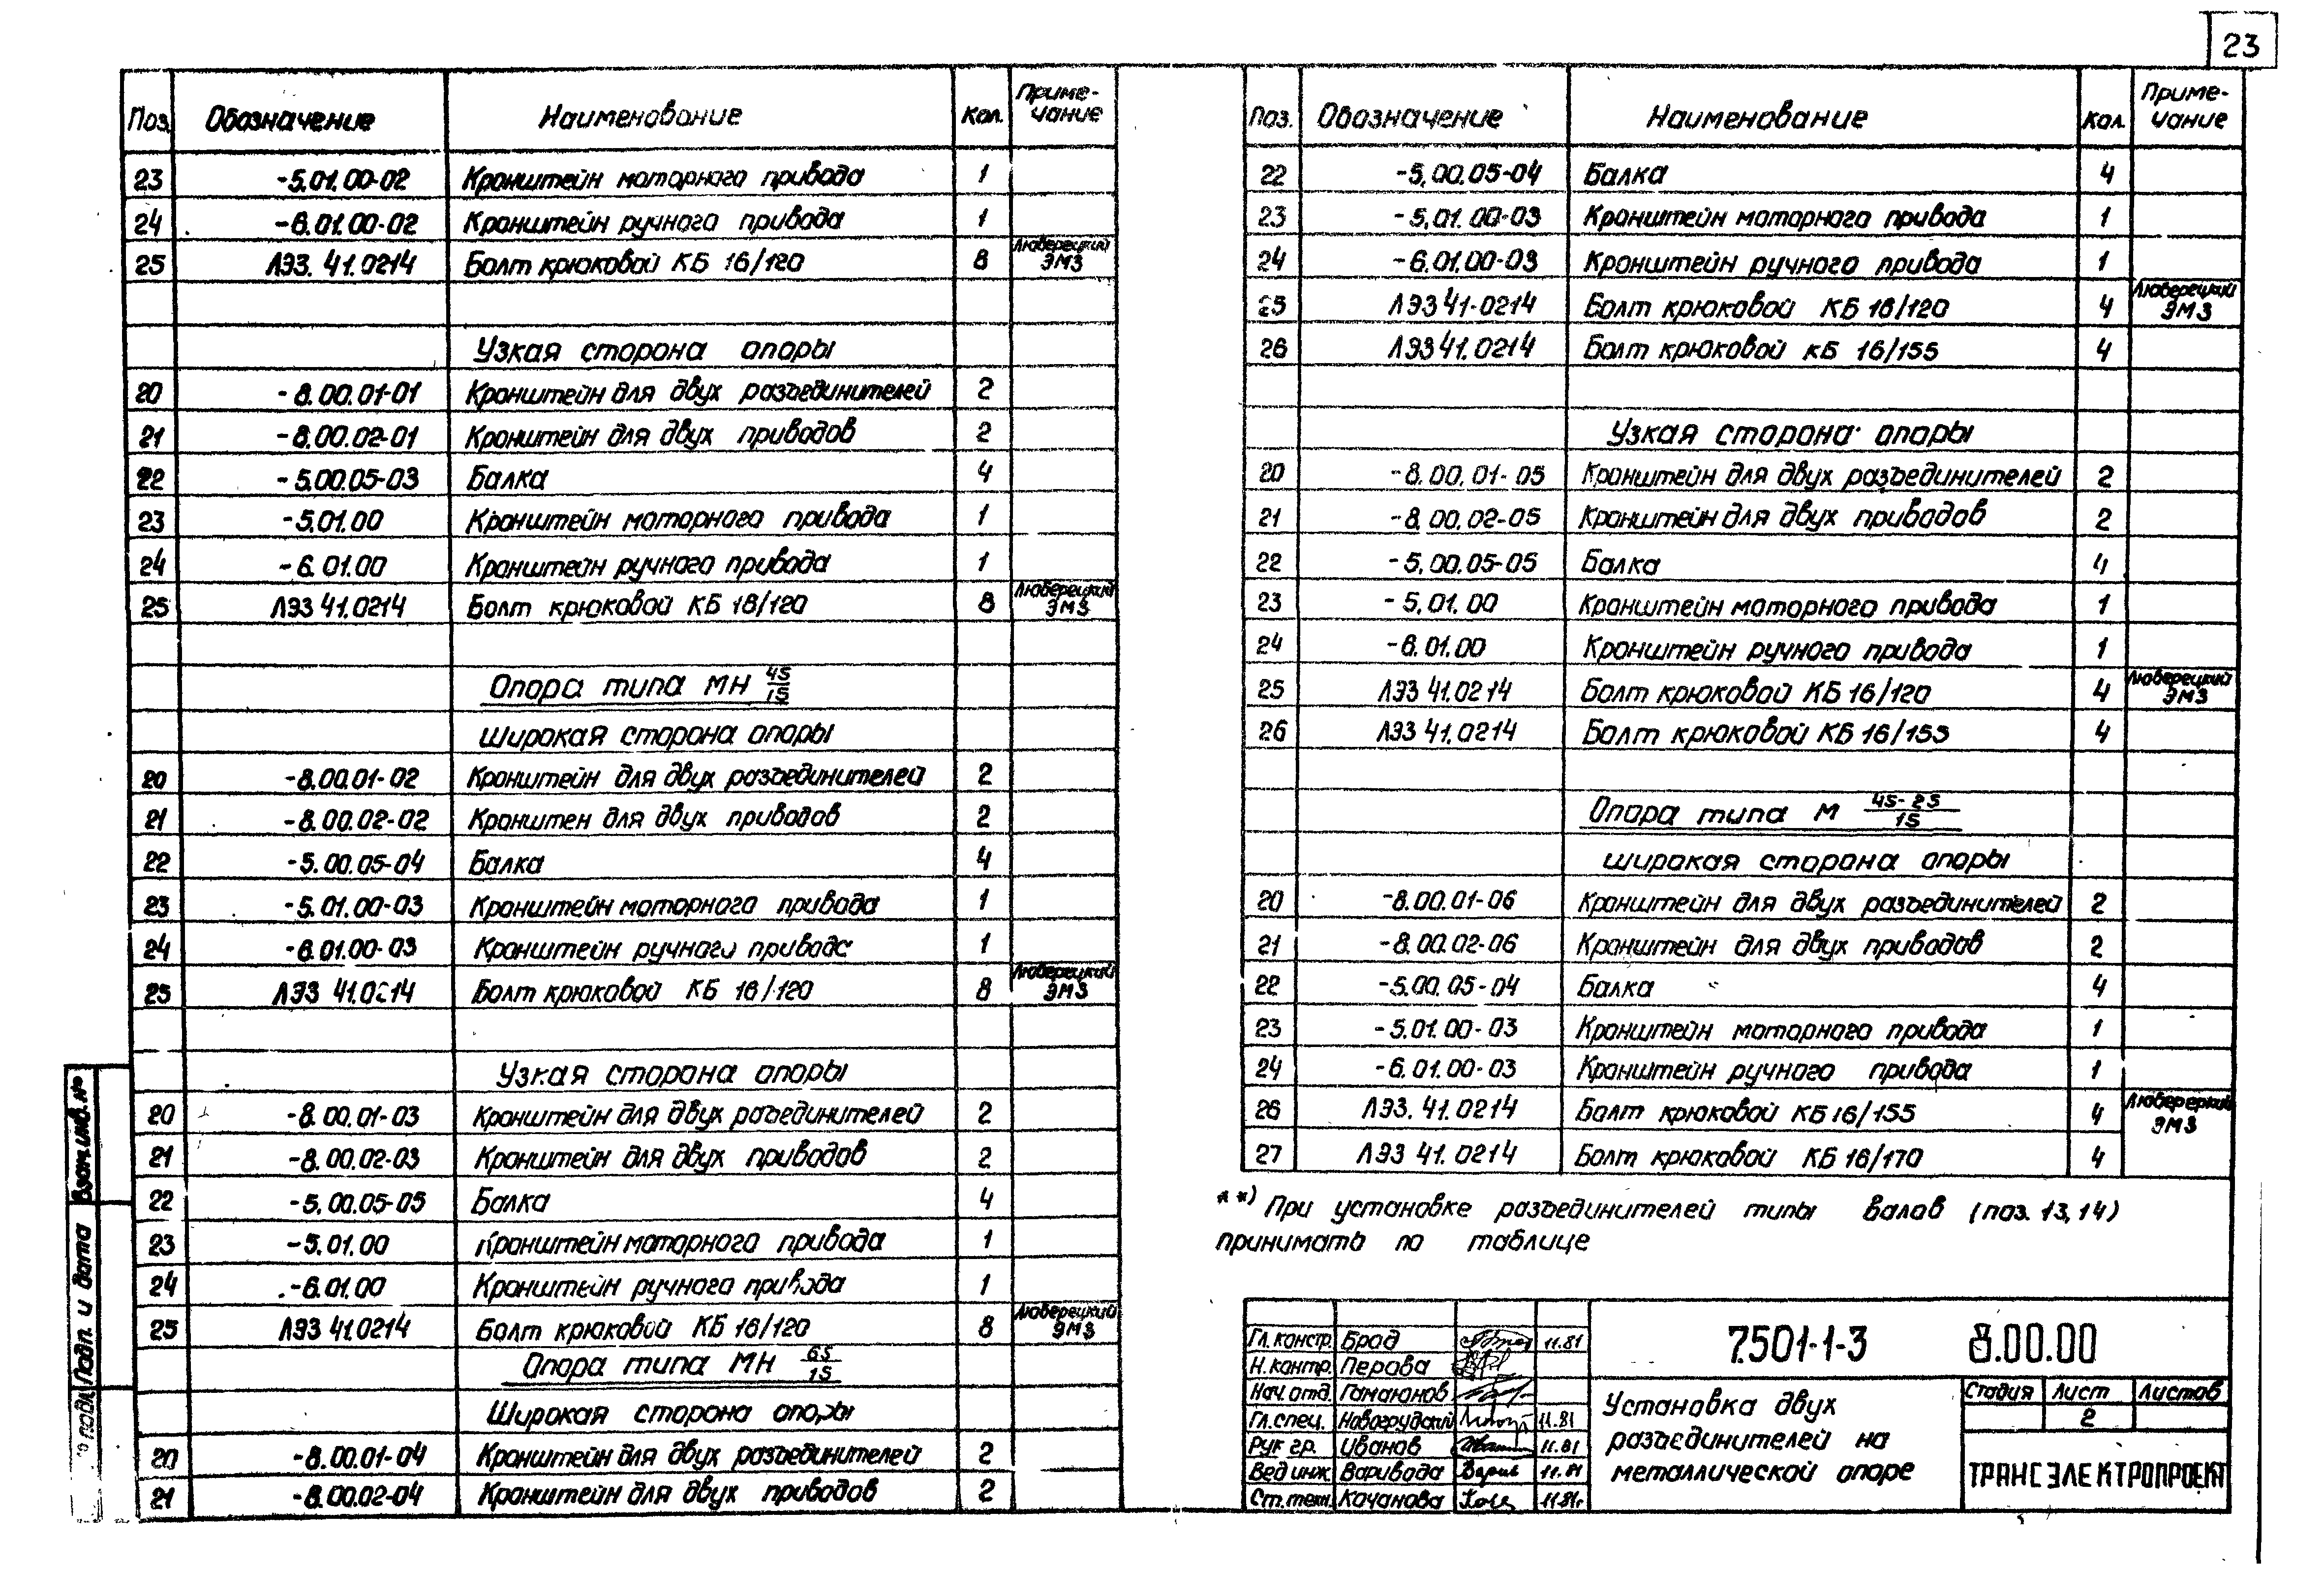 23
Поз. Обозначение Наименование Кол. Приме-
чание
23 -5.01.00-02 Кронштейн моторного привода 1
24 -6.01.00-02 Кронштейн ручного привода 1
25 ЛЭЗ. 41.0214 Болт крюковой КБ 16/120 8 Люберецкий ЭМЗ
Узкая сторона опоры
20 -8.00.01-01 Кронштейн для двух разъединителей 2
21 -8.00.02-01 Кронштейн для двух приводов 2
22 -5.00.05-03 Балка 4
23 -5.01.00 Кронштейн моторного привода 1
24 -6.01.00 Кронштейн ручного привода 1
25 ЛЭЗ 41.0214 Болт крюковой КБ 16/120 8 Люберецкий ЭМЗ
Опора типа МН 45/15
широкая сторона опоры
20 -8.00.01-02 Кронштейн для двух разъединителей 2
21 -8.00.02-02 Кронштен для двух приводов 2
22 -5.00.05-04 Балка 4
23 -5.01.00-03 Кронштейн моторного привода 1
24 -6.01.00-03 Кронштейн ручного привода 1
25 ЛЭЗ 41.0214 Болт крюковой КБ 16/120 8 Люберецкий ЭМЗ
Узкая сторона опоры
20 -8.00.01-03 Кронштейн для двух разъединителей 2
21 -8.00.02-03 Кронштейн для двух приводов 2
22 -5.00.05-05 Балка 4
23 -5.01.00 Кронштейн моторного привода 1
24 -6.01.00 Кронштейн ручного привода 1
25 ЛЭЗ 41.0214 Болт крюковой КБ 16/120 8 Люберецкий ЭМЗ
Опора типа МН 65/15
Широкая сторона опоры
20 -8.00.01-04 Кронштейн для двух разъединителей 2
21 -8.00.02-04 Кронштейн для двух приводов 2
Взам.инв.№
Подп. и дата
подл.
Поз. Обозначение Наименование Кол. Приме-
чание
22 -5.00.05-04 Балка 4
23 -5.01.00-03 Кронштейн моторного привода 1
24 -6.01.00-03 Кронштейн ручного привода 1
25 ЛЭЗ 41-0214 Болт крюковой КБ 16/120 4 Люберецкий ЭМЗ
26 ЛЭЗ 41.0214 Болт крюковой КБ 16/155 4
Узкая сторона опоры
20 -8.00.01-05 Кронштейн для двух разъединителей 2
21 -8.00.02-05 Кронштейн для двух приводов 2
22 -5.00.05-05 Балка 4
23 -5.01.00 Кронштейн моторного привода 1
24 -6.01.00 Кронштейн ручного привода 1
25 ЛЭЗ 41.0214 Болт крюковой КБ 16/120 4 Люберецкий ЭМЗ
26 ЛЭЗ 41.0214 Болт крюковой КБ 16/155 4
Опора типа М 45-25/15
широкая сторона опоры
20 -8.00.01-06 Кронштейн для двух разъединителей 2
21 -8.00.02-06 Кронштейн для двух приводов 2
22 -5.00.05-04 Балка 4
23 -5.01.00-03 Кронштейн моторного привода 1
24 -6.01.00-03 Кронштейн ручного привода 1
26 ЛЭЗ. 41.0214 Болт крюковой КБ 16/155 4 Любереркий ЭМЗ
27 ЛЭЗ 41.0214 Болт крюковой КБ 16/170 4
**) При установке разъединителей типы валов (поз. 13,14)
принимать по таблице
Гл.констр. Брод 11.81
Н.контр. Перова
Нач.отд. Гамаюнов
Гл.спец. Новогрудский 11.81
Рук гр. Иванов 11.81
Вед инж Варивода 11.81
Ст.техн. Качанова 11.81г
7.501-1-3 8.00.00
Установка двух
разъединителей на
металлической опоре
Стадия Лист Листов
2
ТРАНСЭЛЕКТРОПРОЕКТ